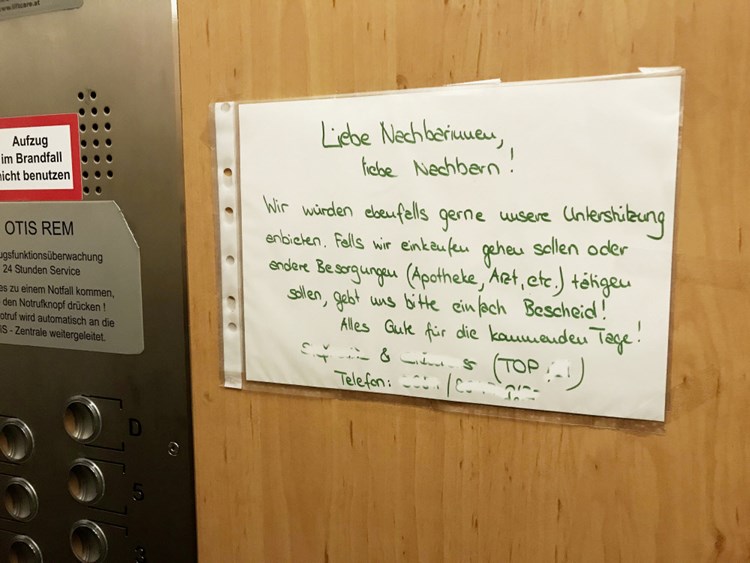 Aufzug
im Brandfall
nicht benutzen
OTIS REM
24 Stunden Service
es zu einem Notfall kommen,
den Notrufknopf drücken !
otruf wird automatisch an die
IS - Zentrale weitergeleitet.
D
5
Liebe Nachbarinnen,
liebe Nachbarn!
Wir würden ebenfalls gerne unsere Unterstützung
anbieten. Falls wir einkaufen gehen sollen oder
andere Besorgungen (Apotheke, Arzt, etc.) tätigen
sollen, gebt uns bitte einfach Bescheid!
Alles Gute für die kommenden Tage!
& (TOP )
Telefon: /